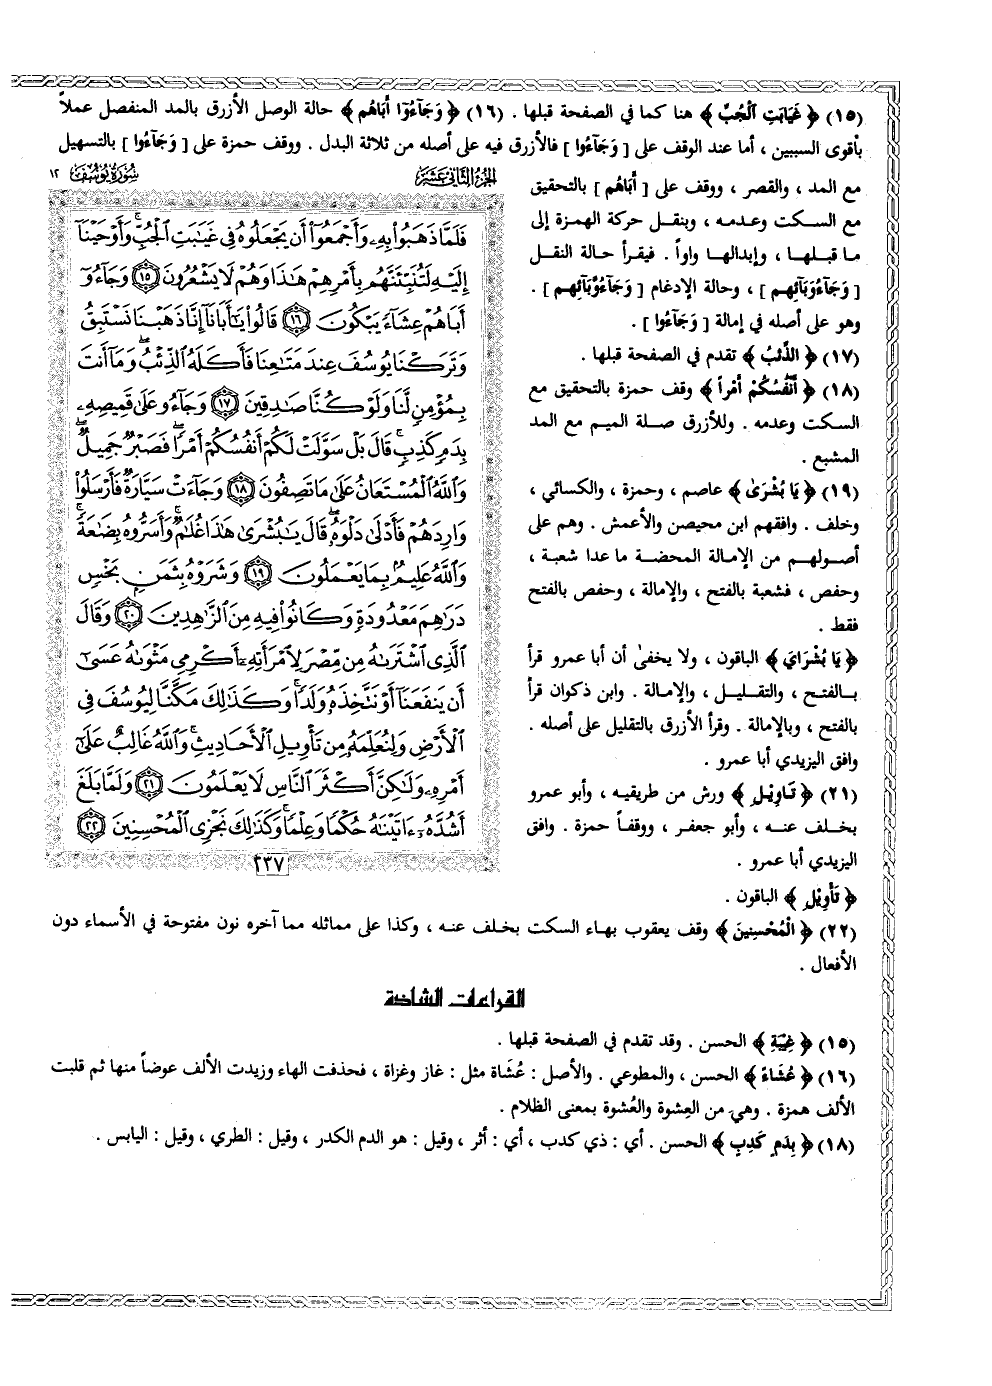 (١٥) ﴿ غَيَابَتِ الْجُبِّ ﴾ هنا كما في الصفحة قبلها . (١٦) ﴿ وَجَآءُوٓا أَبَاهُم ﴾ حالة الوصل الأزرق بالمد المنفصل عملاً
بأقوى السببين ، أما عند الوقف على [ وَجَآءُوا ] فالأزرق فيه على أصله من ثلاثة البدل . ووقف حمزة على [ وَجَآءُوا ] بالتسهيل
مع المد ، والقصر ، ووقف على [ أَبَاهُم ] بالتحقيق
مع السكت وعدمه ، وبنقل حركة الهمزة إلى
ما قبلها ، وإبدالها واواً . فيقرأ حالة النقل
[ وَجَآءُوَبَآئِهِم ] ، وحالة الإدغام [ وَجَآءُوَّبَآئِهِم ] .
وهو على أصله في إمالة [ وَجَآءُوا ] .
(١٧) ﴿ الذِّئْبُ ﴾ تقدم في الصفحة قبلها .
(١٨) ﴿ أَنفُسُكُمْ أَمْراً ﴾ وقف حمزة بالتحقيق مع
السكت وعدمه . وللأزرق صلة الميم مع المد
المشبع .
(١٩) ﴿ يَا بُشْرَىٰ ﴾ عاصم ، وحمزة ، والكسائي ،
وخلف . وافقهم ابن محيصن والأعمش . وهم على
أصولهم من الإمالة المحضة ما عدا شعبة ،
وحفص ، فشعبة بالفتح ، والإمالة ، وحفص بالفتح
فقط .
﴿ يَا بُشْرَايَ ﴾ الباقون ، ولا يخفىٰ أن أبا عمرو قرأ
بالفتح ، والتقليل ، والإمالة . وابن ذكوان قرأ
بالفتح ، وبالإمالة . وقرأ الأزرق بالتقليل على أصله .
وافق اليزيدي أبا عمرو .
(٢١) ﴿ تَاوِيلِ ﴾ ورش من طريقيه ، وأبو عمرو
بخلف عنه ، وأبو جعفر ، ووقفاً حمزة . وافق
اليزيدي أبا عمرو .
﴿ تَأْوِيلِ ﴾ الباقون .
الجزء الثاني عشر سورة يوسف ١٢
فَلَمَّا ذَهَبُوا۟ بِهِۦ وَأَجْمَعُوٓا۟ أَن يَجْعَلُوهُ فِى غَيَٰبَتِ ٱلْجُبِّ ۚ وَأَوْحَيْنَآ
إِلَيْهِ لَتُنَبِّئَنَّهُم بِأَمْرِهِمْ هَٰذَا وَهُمْ لَا يَشْعُرُونَ ١٥ وَجَآءُوٓ
أَبَاهُمْ عِشَآءً يَبْكُونَ ١٦ قَالُوا۟ يَٰٓأَبَانَآ إِنَّا ذَهَبْنَا نَسْتَبِقُ
وَتَرَكْنَا يُوسُفَ عِندَ مَتَٰعِنَا فَأَكَلَهُ ٱلذِّئْبُ ۖ وَمَآ أَنتَ
بِمُؤْمِنٍ لَّنَا وَلَوْ كُنَّا صَٰدِقِينَ ١٧ وَجَآءُو عَلَىٰ قَمِيصِهِۦ
بِدَمٍ كَذِبٍ ۚ قَالَ بَلْ سَوَّلَتْ لَكُمْ أَنفُسُكُمْ أَمْرًا ۖ فَصَبْرٌ جَمِيلٌ ۖ
وَٱللَّهُ ٱلْمُسْتَعَانُ عَلَىٰ مَا تَصِفُونَ ١٨ وَجَآءَتْ سَيَّارَةٌ فَأَرْسَلُوا۟
وَارِدَهُمْ فَأَدْلَىٰ دَلْوَهُۥ ۖ قَالَ يَٰبُشْرَىٰ هَٰذَا غُلَٰمٌ ۚ وَأَسَرُّوهُ بِضَٰعَةً ۚ
وَٱللَّهُ عَلِيمٌۢ بِمَا يَعْمَلُونَ ١٩ وَشَرَوْهُ بِثَمَنٍۭ بَخْسٍ
دَرَٰهِمَ مَعْدُودَةٍ وَكَانُوا۟ فِيهِ مِنَ ٱلزَّٰهِدِينَ ٢٠ وَقَالَ
ٱلَّذِى ٱشْتَرَىٰهُ مِن مِّصْرَ لِٱمْرَأَتِهِۦٓ أَكْرِمِى مَثْوَىٰهُ عَسَىٰٓ
أَن يَنفَعَنَآ أَوْ نَتَّخِذَهُۥ وَلَدًا ۚ وَكَذَٰلِكَ مَكَّنَّا لِيُوسُفَ فِى
ٱلْأَرْضِ وَلِنُعَلِّمَهُۥ مِن تَأْوِيلِ ٱلْأَحَادِيثِ ۚ وَٱللَّهُ غَالِبٌ عَلَىٰٓ
أَمْرِهِۦ وَلَٰكِنَّ أَكْثَرَ ٱلنَّاسِ لَا يَعْلَمُونَ ٢١ وَلَمَّا بَلَغَ
أَشُدَّهُۥٓ ءَاتَيْنَٰهُ حُكْمًا وَعِلْمًا ۚ وَكَذَٰلِكَ نَجْزِى ٱلْمُحْسِنِينَ ٢٢
٢٣٧
(٢٢) ﴿ الْمُحْسِنِينَ ﴾ وقف يعقوب بهاء السكت بخلف عنه ، وكذا على مماثله مما آخره نون مفتوحة في الأسماء دون
الأفعال .
القراءات الشاذة
(١٥) ﴿ غَيْبَةِ ﴾ الحسن . وقد تقدم في الصفحة قبلها .
(١٦) ﴿ عُشَاءً ﴾ الحسن ، والمطوعي . والأصل : عُشَاة مثل : غاز وغزاة ، فحذفت الهاء وزيدت الألف عوضاً منها ثم قلبت
الألف همزة . وهي من العِشوة والعُشوة بمعنى الظلام .
(١٨) ﴿ بِدَمٍ كَدِبٍ ﴾ الحسن . أي : ذي كدب ، أي : أثر ، وقيل : هو الدم الكدر ، وقيل : الطري ، وقيل : اليابس .